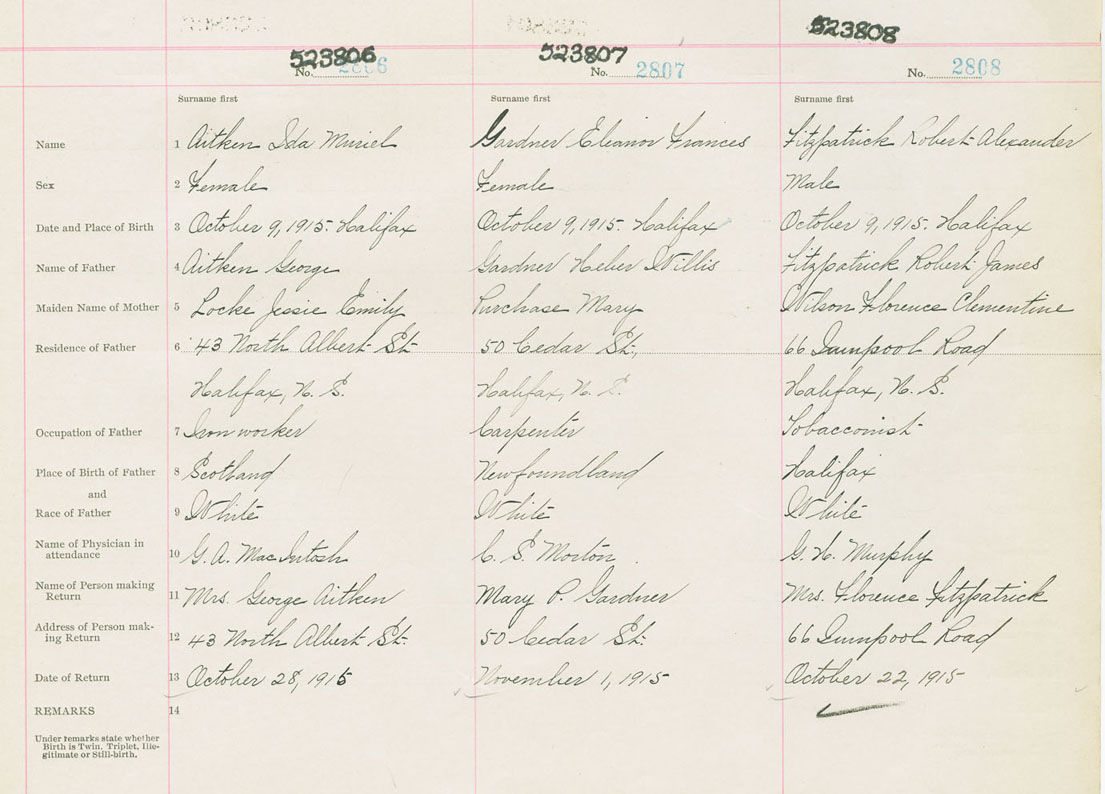 523806 523807 523808
No. 2806 No. 2807 No. 2808
Surname first Surname first Surname first
Name 1 Aitken Ida Muriel Gardner Eleanor Frances Fitzpatrick Robert Alexander
Sex 2 Female Female Male
Date and Place of Birth 3 October 9, 1915. Halifax October 9, 1915. Halifax October 9, 1915. Halifax
Name of Father 4 Aitken George Gardner Heber Willis Fitzpatrick Robert James
Maiden Name of Mother 5 Locke Jessie Emily Purchase Mary Wilson Florence Clementine
Residence of Father 6 43 North Albert St. 50 Cedar St., 66 Quinpool Road
Halifax, N. S. Halifax, N. S. Halifax, N. S.
Occupation of Father 7 Iron worker Carpenter Tobacconist
Place of Birth of Father 8 Scotland Newfoundland Halifax
and
Race of Father 9 White White White
Name of Physician in
attendance 10 G. A. MacIntosh C. S. Morton G. H. Murphy
Name of Person making
Return 11 Mrs. George Aitken Mary P. Gardner Mrs. Florence Fitzpatrick
Address of Person mak-
ing Return 12 43 North Albert St. 50 Cedar St. 66 Quinpool Road
Date of Return 13 October 28, 1915 November 1, 1915 October 22, 1915
REMARKS 14
Under remarks state whether
Birth is Twin, Triplet, Ille-
gitimate or Still-birth.